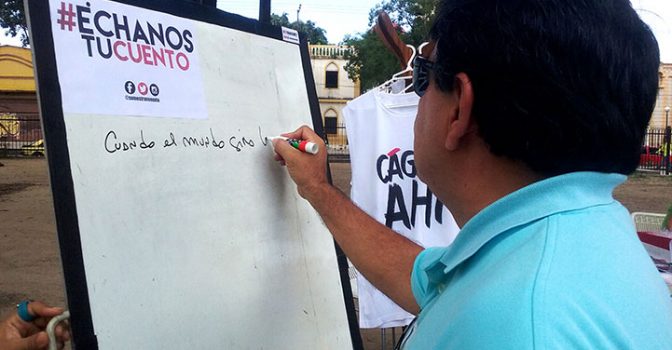 #ÉCHANOS
TUCUENTO
Cuando el mundo giro
AHÍ